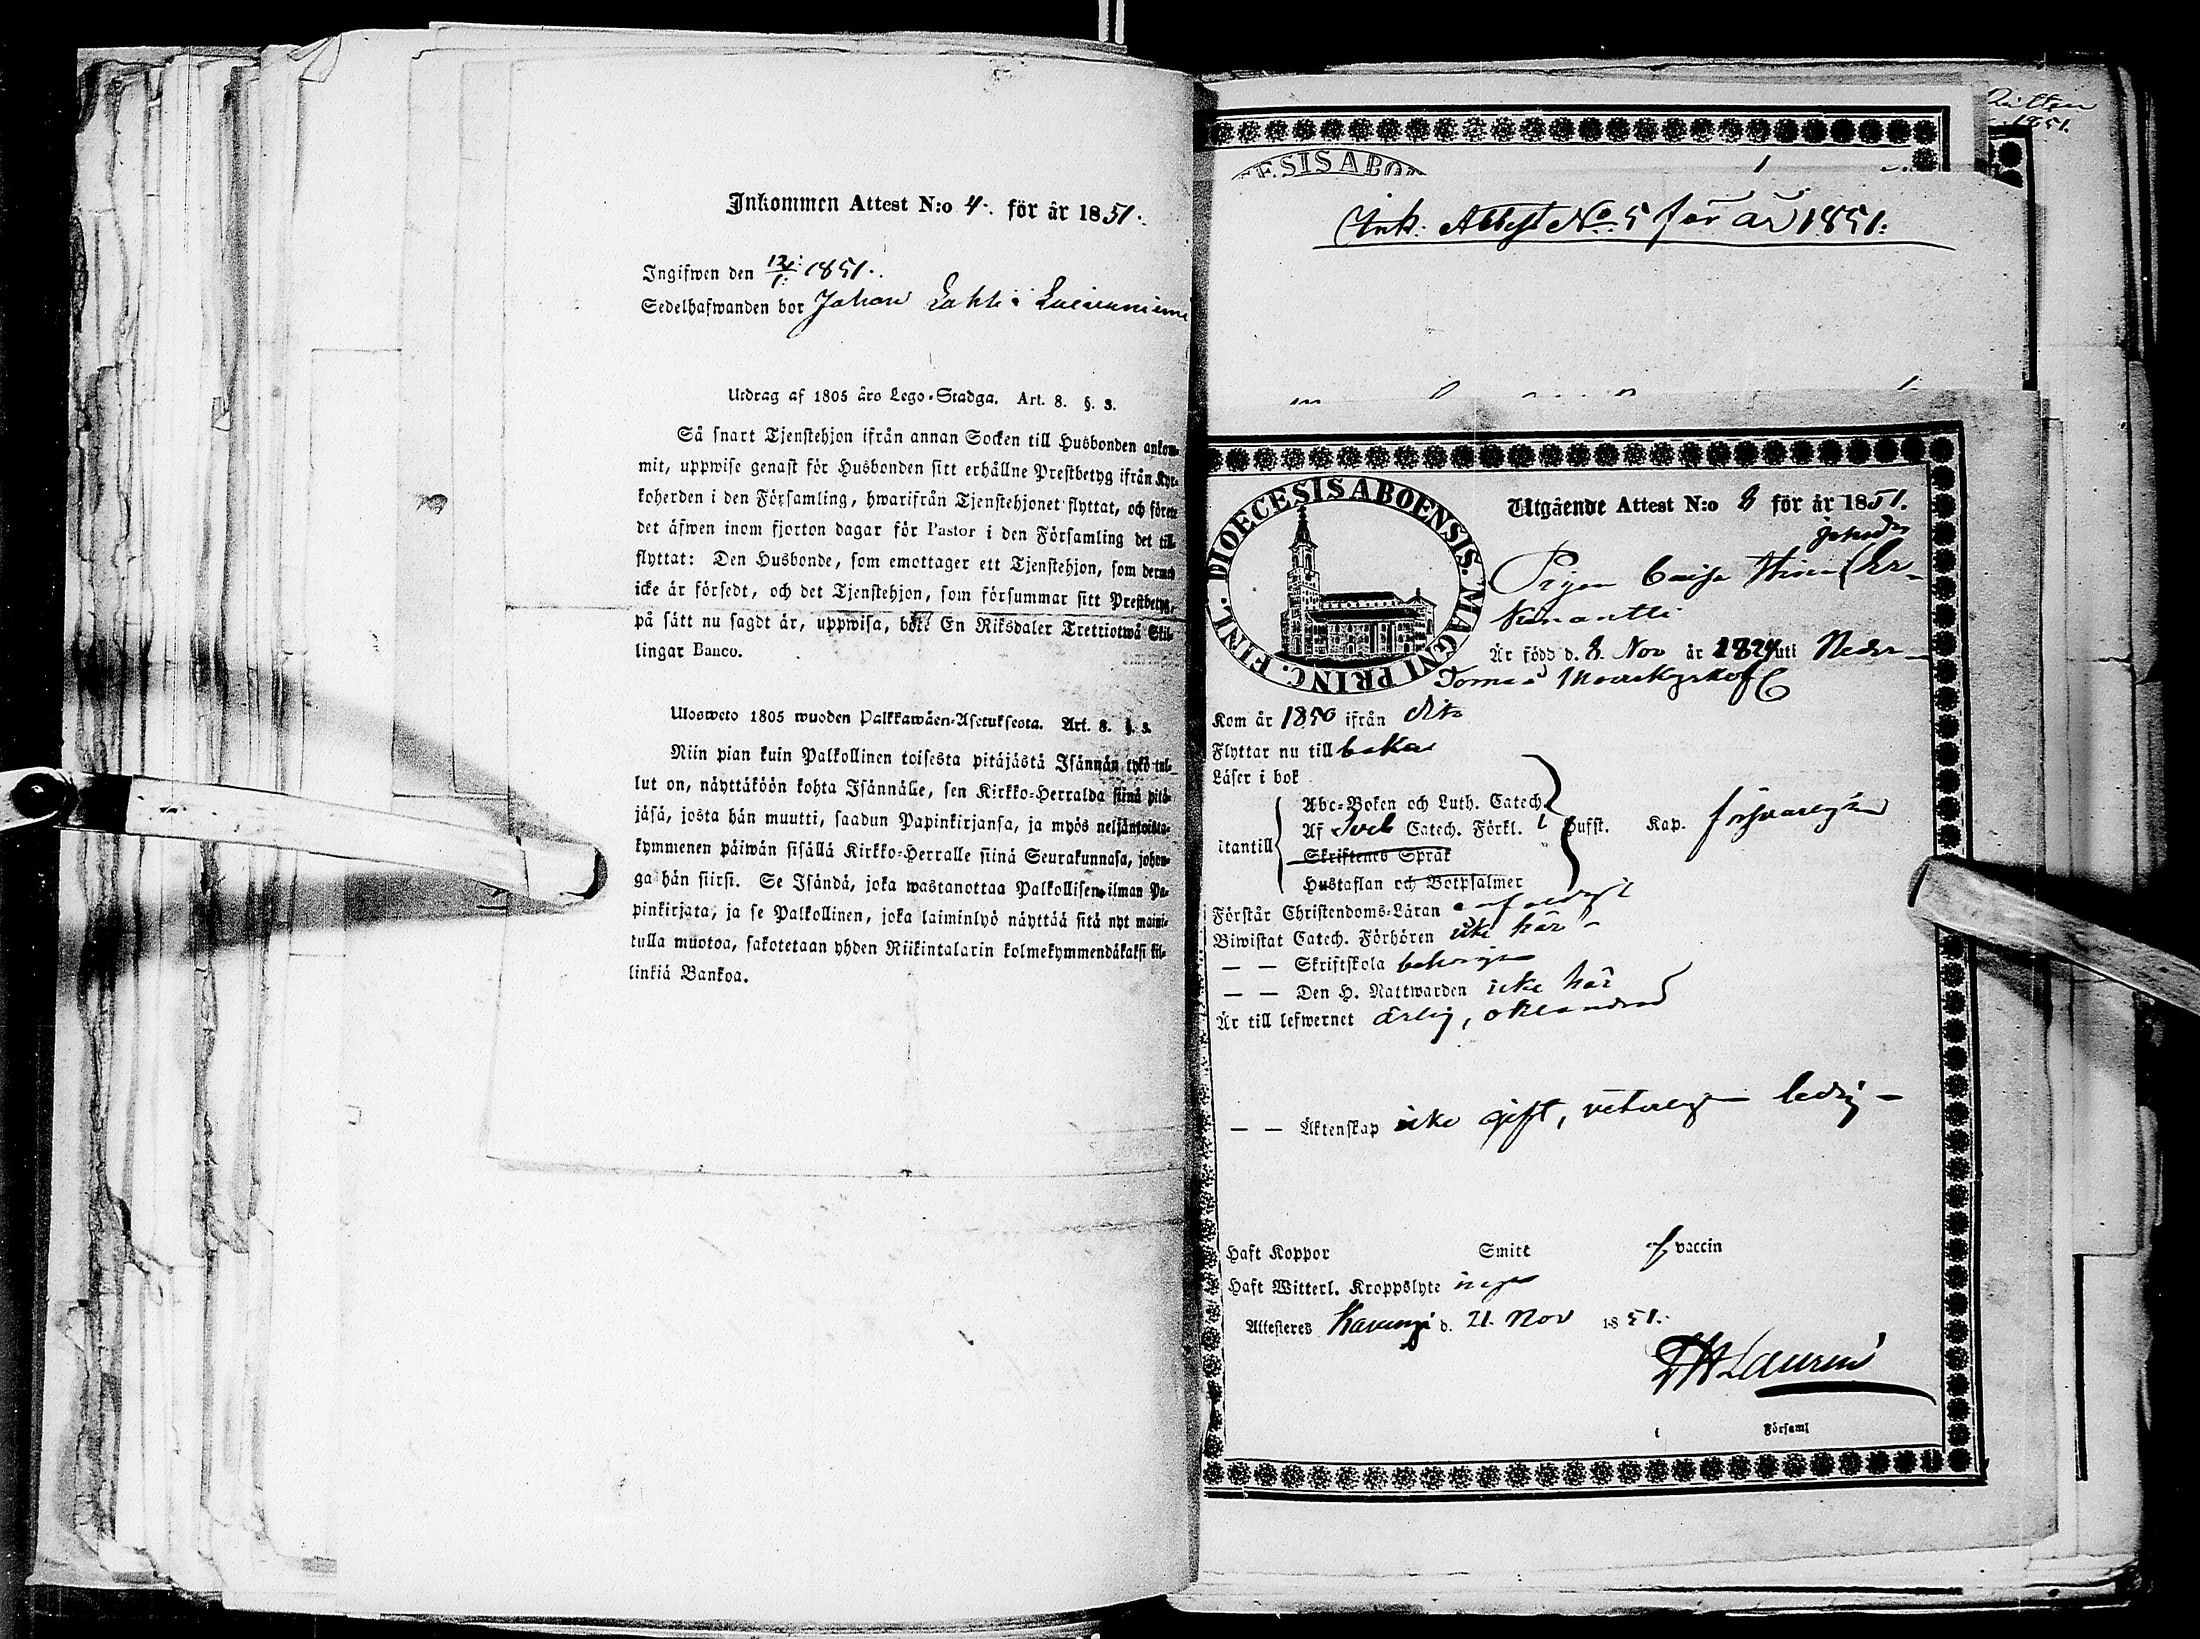 Inkommen Attest N:o 4. för år 1851.
Ingifwen den 12/1 1851.
Sedelhafwanden bor Johan Lahti i
Utdrag af 1805 års Lego-Stadga. Art. 8. §. 3.
Så snart Tjenstehjon ifrån annan Socken till Husbonden ankom-
mit, uppwise genast för Husbonden sitt erhållne Prestbetyg ifrån Kyr-
koherden i den Församling, hwarifrån Tjenstehjonet flyttat, och förete
det äfwen inom fjorton dagar för Pastor i den Församling det till-
flyttat: Den Husbonde, som emottager ett Tjenstehjon, som dermed
icke är försedt, och det Tjenstehjon, som försummar sitt Prestbetyg,
på sätt nu sagdt är, uppwisa, böte En Riksdaler Trettiotwå Skil-
lingar Banco.
Ulosweto 1805 wuoden Palkkawäen-Asetuksesta. Art. 8. §. 3.
Niin pian kuin Palkollinen toisesta pitäjästä Isännän tykö tul-
lut on, näyttäköön kohta Isännälle, sen Kirkko-Herralda siinä pitä-
jäsä, josta hän muutti, saadun Papinkirjansa, ja myös neljäntoista-
kymmenen päiwän sisällä Kirkko-Herralle siinä Seurakunnasa, johon-
ga hän siirsi. Se Isändä, joka wastanottaa Palkollisen ilman Pa-
pinkirjata, ja se Palkollinen, joka laiminlyö näyttää sitä nyt maini-
tulla muotoa, sakotetaan yhden Riikintalarin kolmekymmendäkaksi kil-
linkiä Bankoa.
1851.
ESIS ABOE
Ink. Attest No. 5 för år 1851.
DIOECESIS ABOENSIS. MAGNI PRINC. FINL.
Utgående Attest N:o 8 för år 1851.
Pigan Caisa
Är född d. 8. Nov år 1824 uti Neder-
Torneå
Kom år 1850 ifrån dito
Flyttar nu till baka
Läser i bok
Abc-Boken och Luth. Catech.
Af Sveb Catech. Förkl.
Utantill
Skriftenes Språk
Hustaflan och Botpsalmer
Huffst. Kap. försvarligen
Förstår Christendoms-Läran
Biwistat Catech. Förhören icke här
— — Skriftskola behörigen
— — Den H. Nattwarden icke här
Är till lefwernet ärlig, oklandrad
— — Äktenskap icke gift, veterligen ledig
Haft Koppor Smitt af vaccin
Haft Witterl. Kroppslyte inga
Attesteres Karungi d. 21. Nov 1851.
Laurin
i Församl